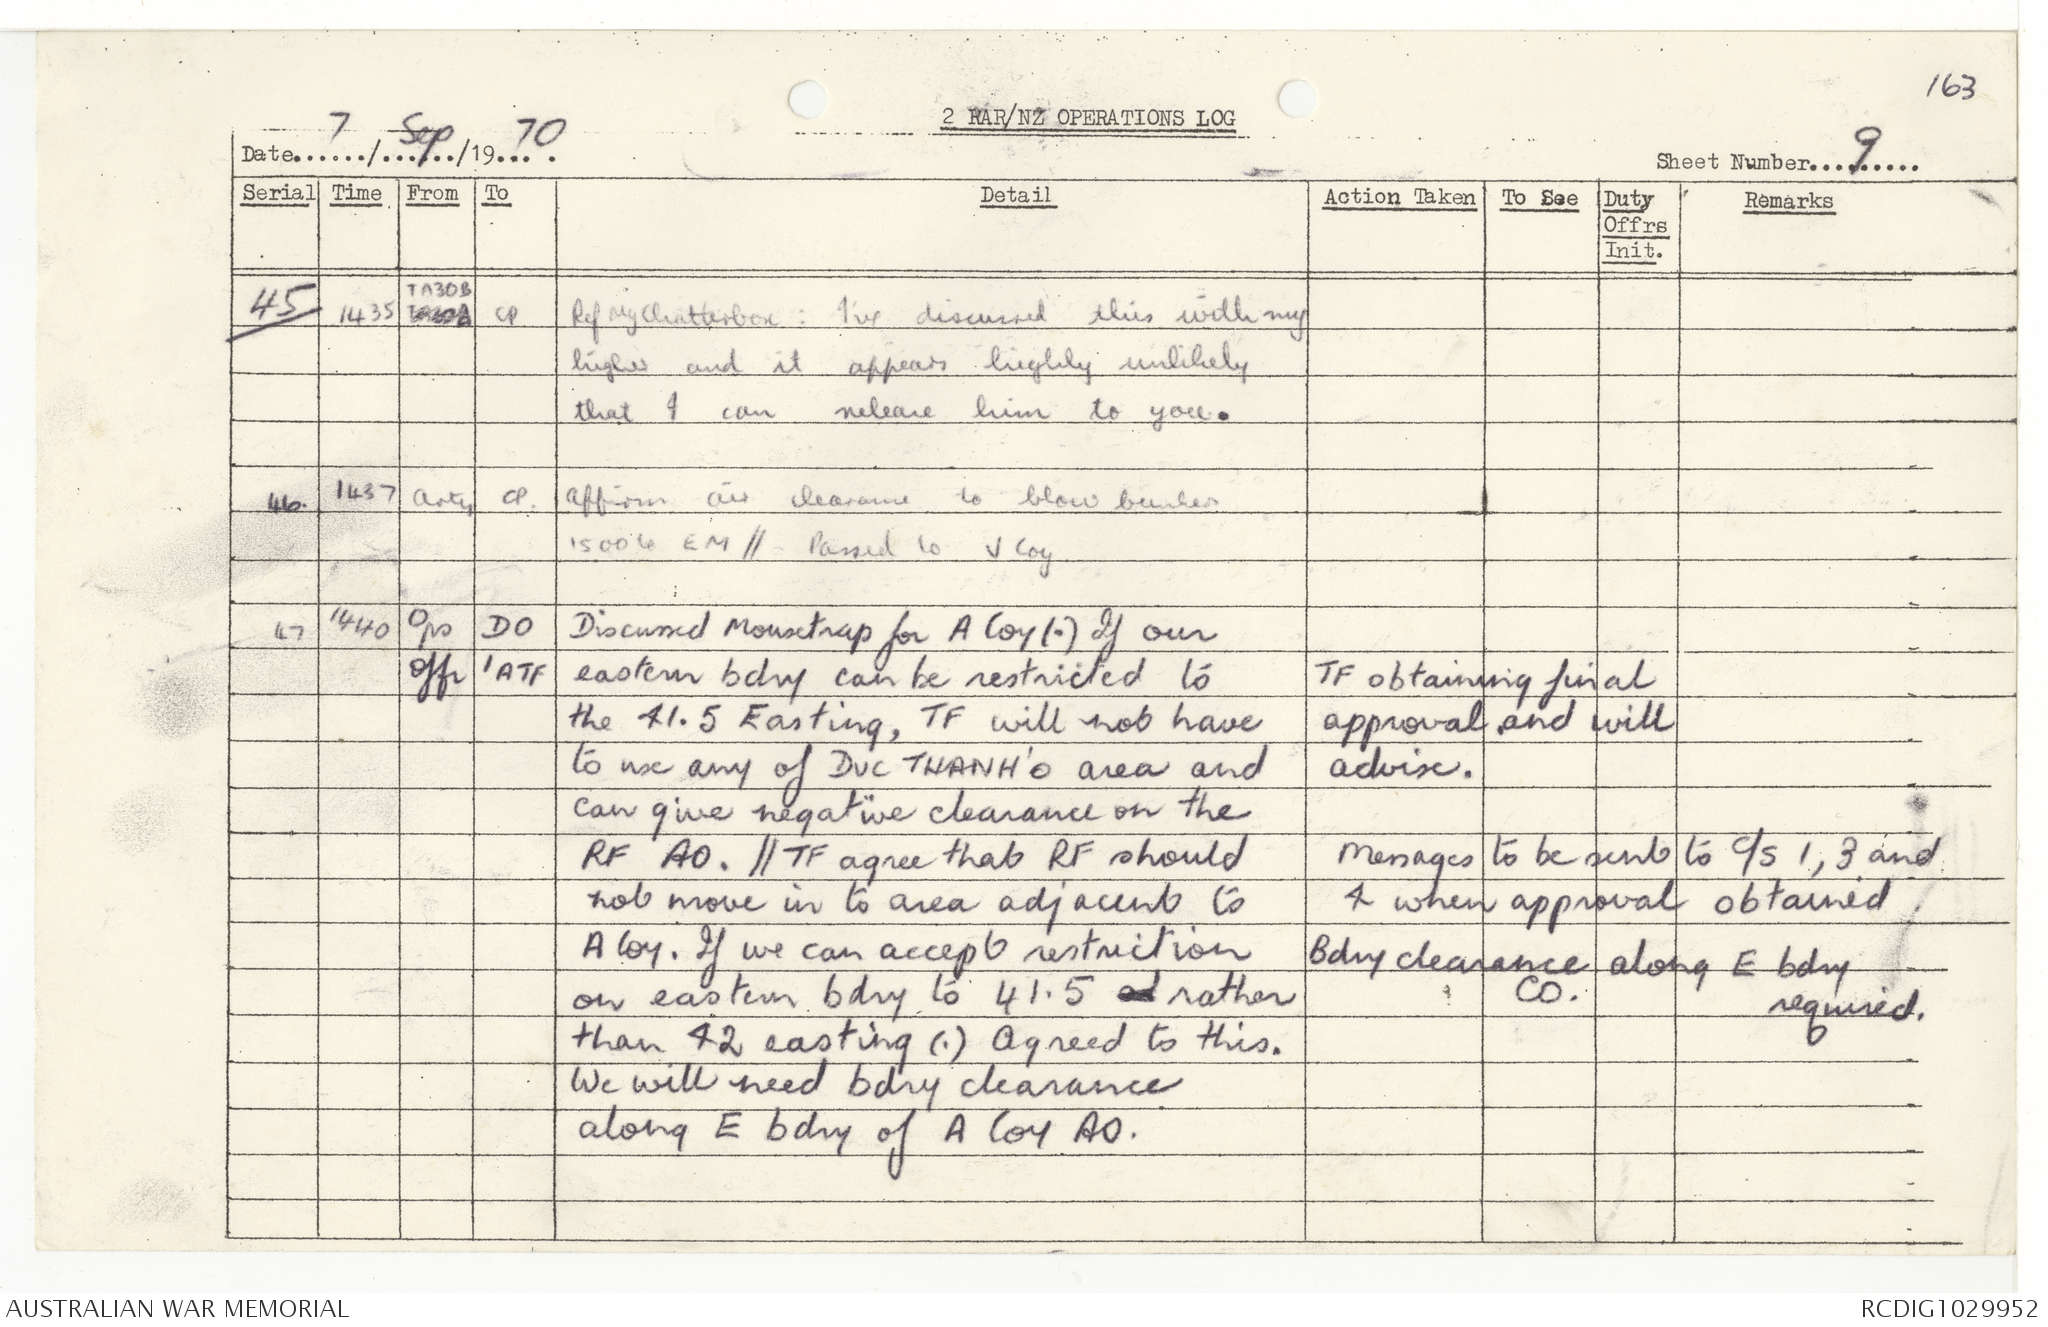 163
2 RAR/NZ OPERATIONS LOG
Date 7 / Sep / 19 70
Sheet Number 9
Serial Time From To Detail Action Taken To See Duty Offrs Init. Remarks
45 1435 TA30B CP Ref My Chatterbox : I've discussed this with my
higher and it appears highly unlikely
that I can release him to you.
46. 1437 Arty CP. Affirm air clearance to blow bunkers
1500 EM // Passed to V Coy
47 1440 Ops DO Discussed Mousetrap for A Coy (.) If our
Offr 1ATF eastern bdry can be restricted to TF obtaining final
the 41.5 Easting, TF will not have approval and will
to use any of DUC THANH'O area and advise.
can give negative clearance on the
RF AO. // TF agree that RF should Messages to be sent to C/S 1, 3 and
not move in to area adjacent to 4 when approval obtained
A Coy. If we can accept restriction Bdry clearance along E bdry
on eastern bdry to 41.5 rather CO. required.
than 42 easting (.) Agreed to this.
We will need bdry clearance
along E bdry of A Coy AO.
AUSTRALIAN WAR MEMORIAL
RCDIG1029952